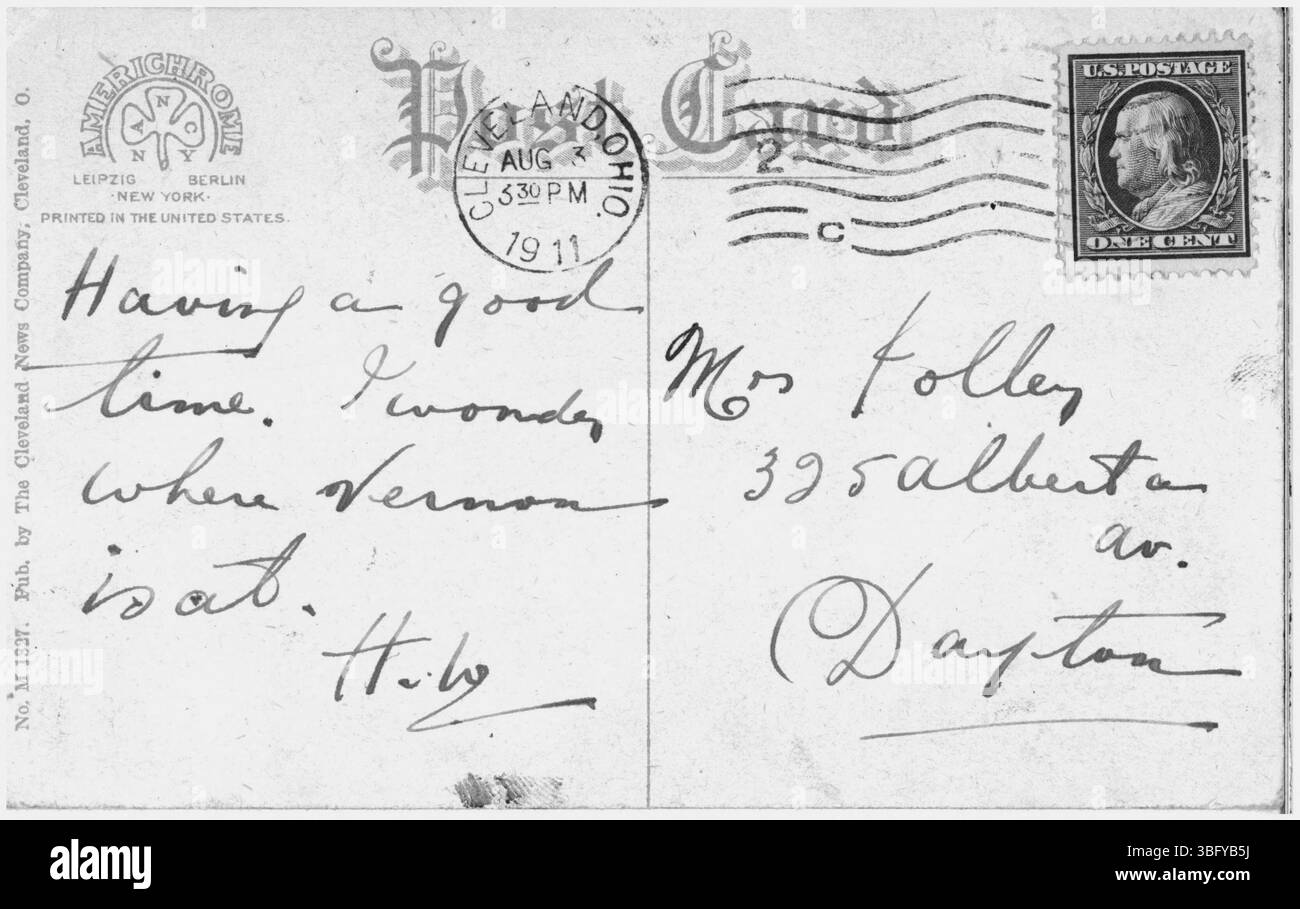 AMERICHROME
A N C
N Y
LEIPZIG BERLIN
·NEW YORK·
PRINTED IN THE UNITED STATES.
Post Card
CLEVELAND, OHIO.
AUG 3
3 30 PM
1911
2
C
U.S. POSTAGE
ONE CENT
No. M 1327. Pub. by The Cleveland News Company, Cleveland, O.
Having a good
time. I wonder
where Vernon
is at.
H.W
Mrs Kolley
325 Alberta
av.
Dayton
alamy
Image ID: 3BFYB5J
www.alamy.com